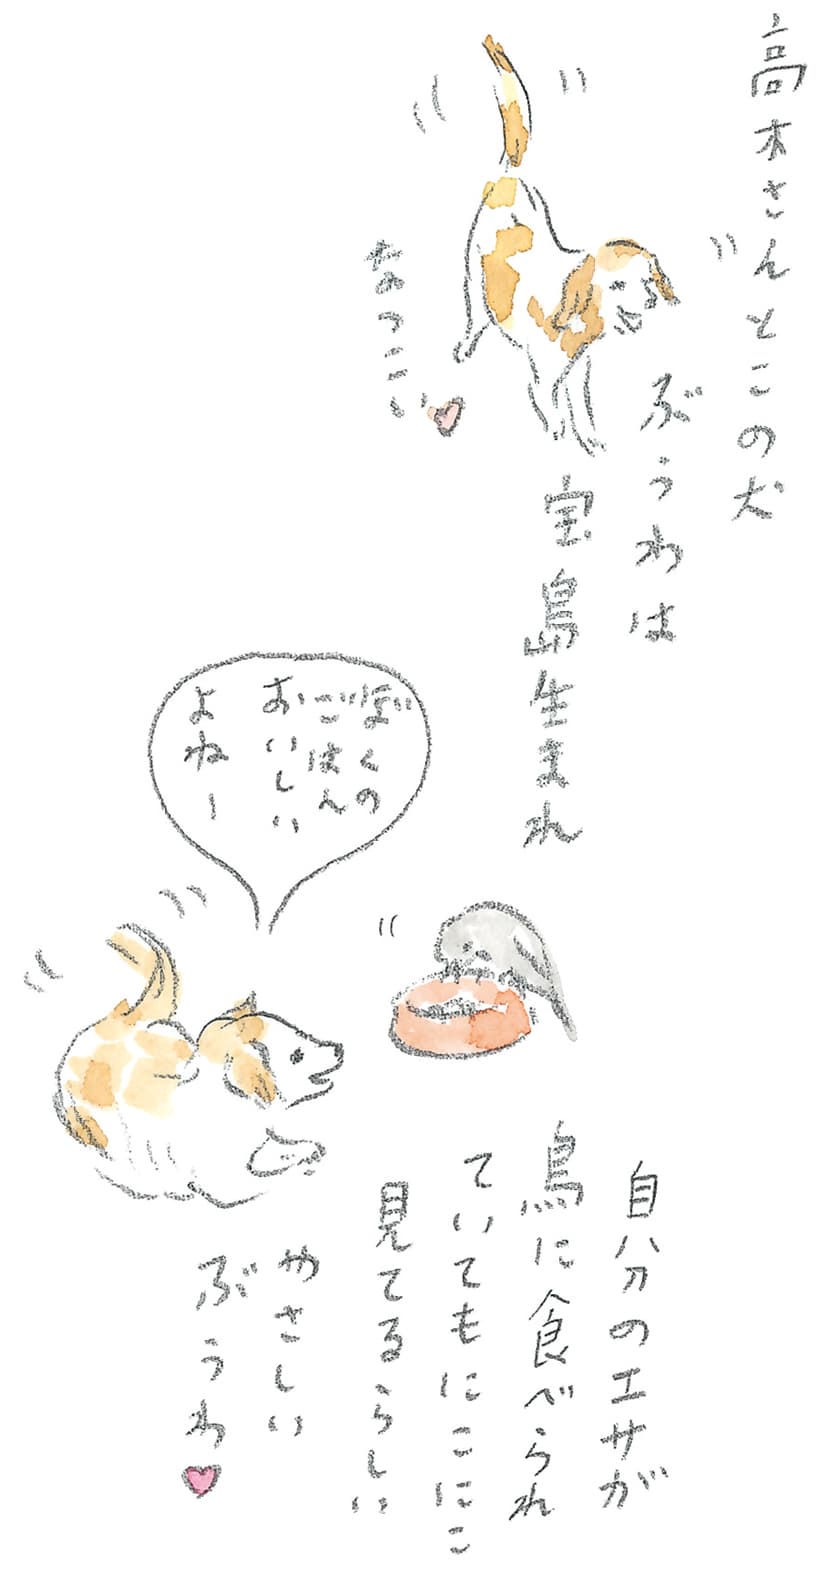 高木さんとこの犬
ぶうわは
宝島生まれ
なつこい
ぼくの
ごはん
おいしい
よねー
自分のエサが
鳥に食べられ
ていてもにこにこ
見てるらしい
やさしい
ぶうわ